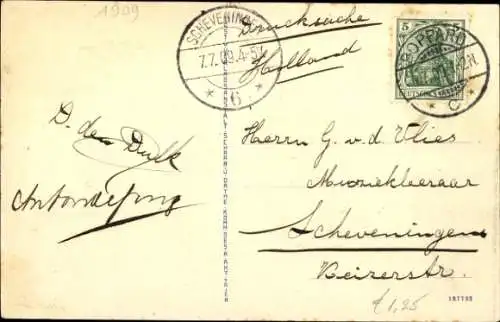 1909
SCHEVENINGEN
7.7.09.4-5V
* 6 *
Drucksache
Holland
5 5
BOPPARD
DEUTSCHES REICH
* C *
D. den Dulk
Herrn G. v. d. Vlies
Muziekleeraar
Scheveningen
Keizerstr.
187798
1,25